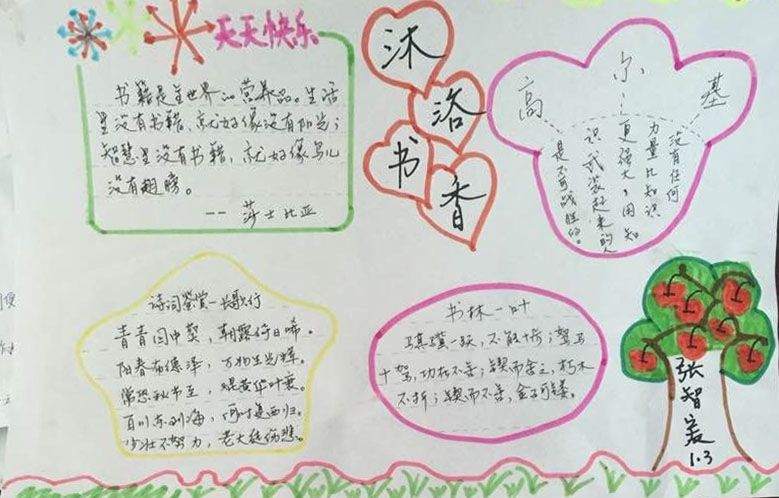 天天快乐
书籍是全世界的营养品。生活
里没有书籍，就好像没有阳光；
智慧里没有书籍，就好像鸟儿
没有翅膀。
--莎士比亚
沐
浴
书
香
高尔基
没有任何
力量比知识
更强大，用知
识武装起来的人
是不可战胜的。
诗词鉴赏—长歌行
青青园中葵，朝露待日晞。
阳春布德泽，万物生光辉。
常恐秋节至，焜黄华叶衰。
百川东到海，何时复西归。
少壮不努力，老大徒伤悲。
书林一叶
骐骥一跃，不能十步；驽马
十驾，功在不舍；锲而舍之，朽木
不折；锲而不舍，金石可镂。
张智
1.3